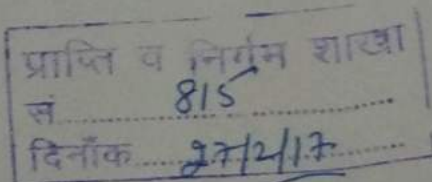 प्राप्ति व निर्गम शाखा
सं 815
दिनाँक 27/2/17